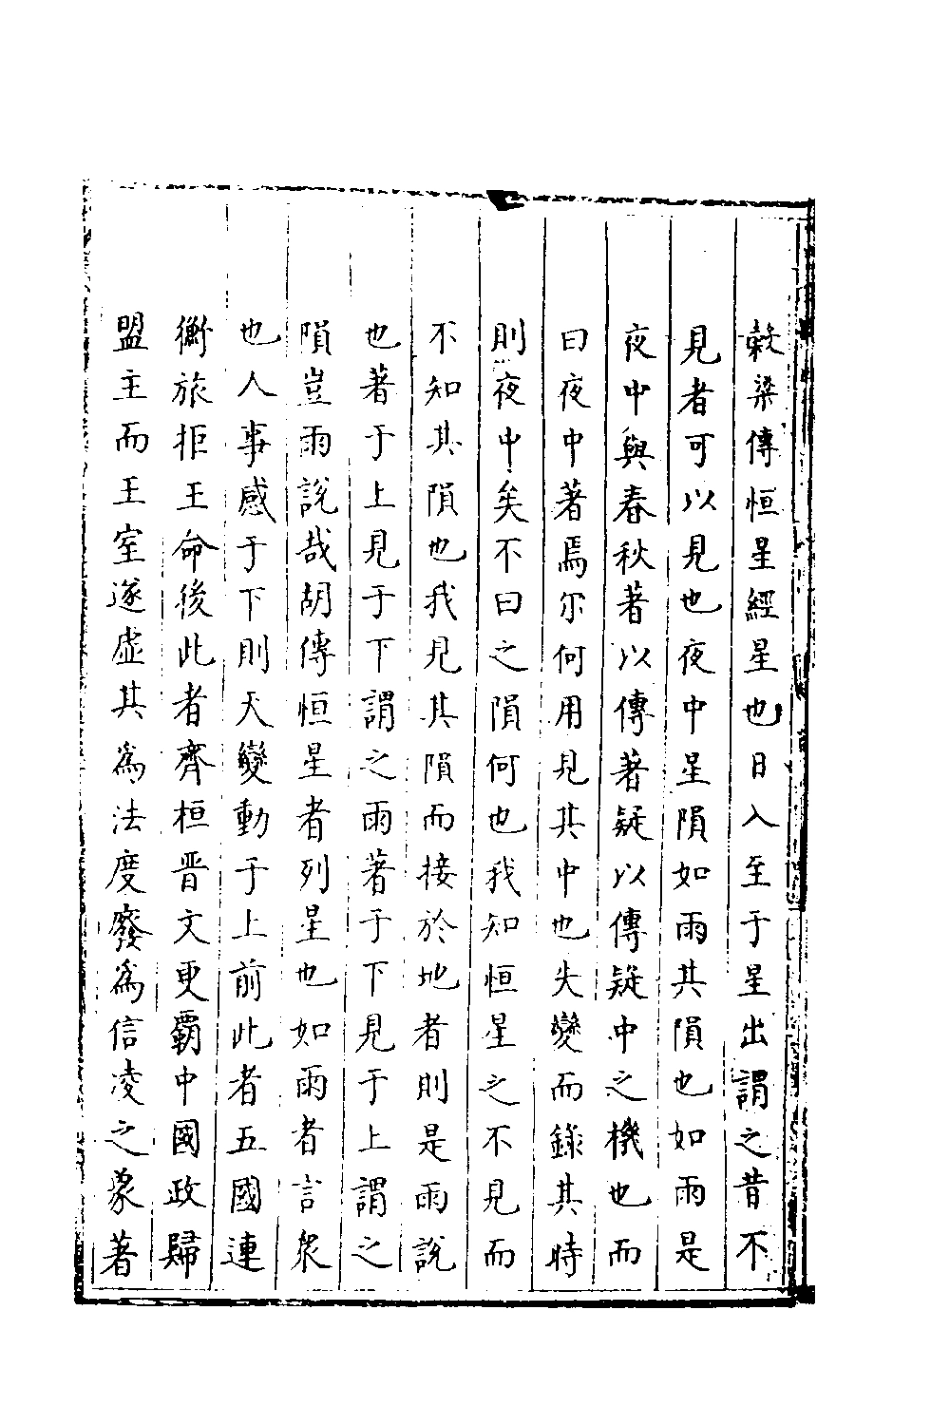 穀梁傳恒星經星也日入至于星出謂之昔不
見者可以見也夜中星隕如雨其隕也如雨是
夜中與春秋著以傳著疑以傳疑中之機也而
曰夜中著焉尔何用見其中也失變而錄其時
則夜中矣不曰之隕何也我知恒星之不見而
不知其隕也我見其隕而接於地者則是雨說
也著于上見于下謂之雨著于下見于上謂之
隕豈雨說哉胡傳恒星者列星也如雨者言衆
也人事感于下則天變動于上前此者五國連
衡旅拒王命後此者齊桓晋文更霸中國政歸
盟主而王室遂虛其為法度廢為信凌之象著